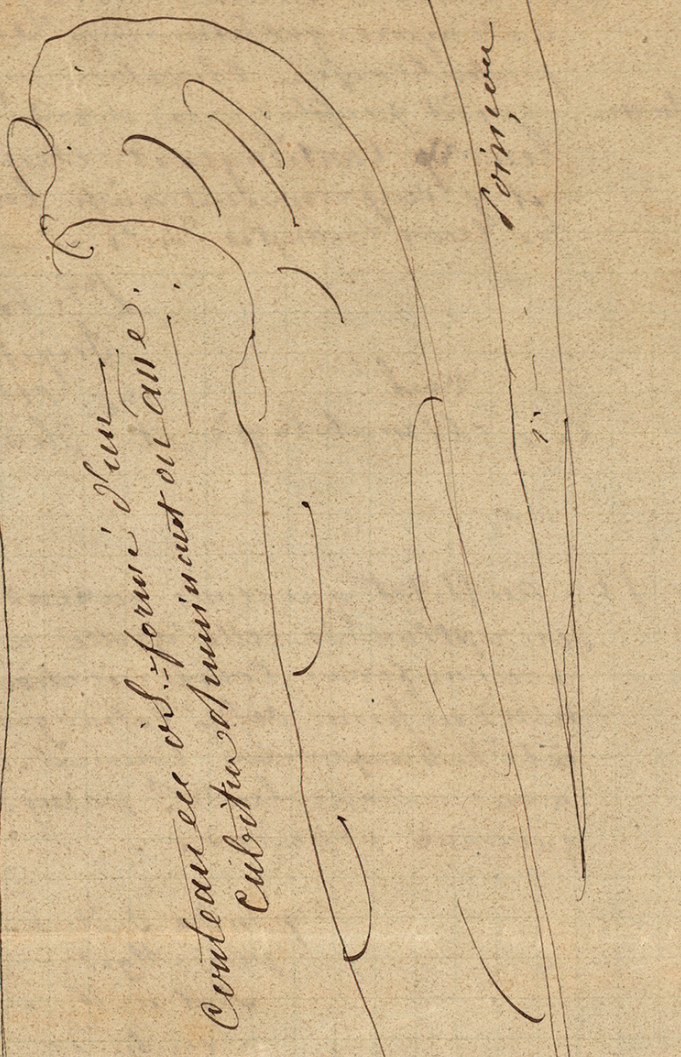 Couteau en os. formé d'un
cubitus de ruminant ou âne.
Poinçon